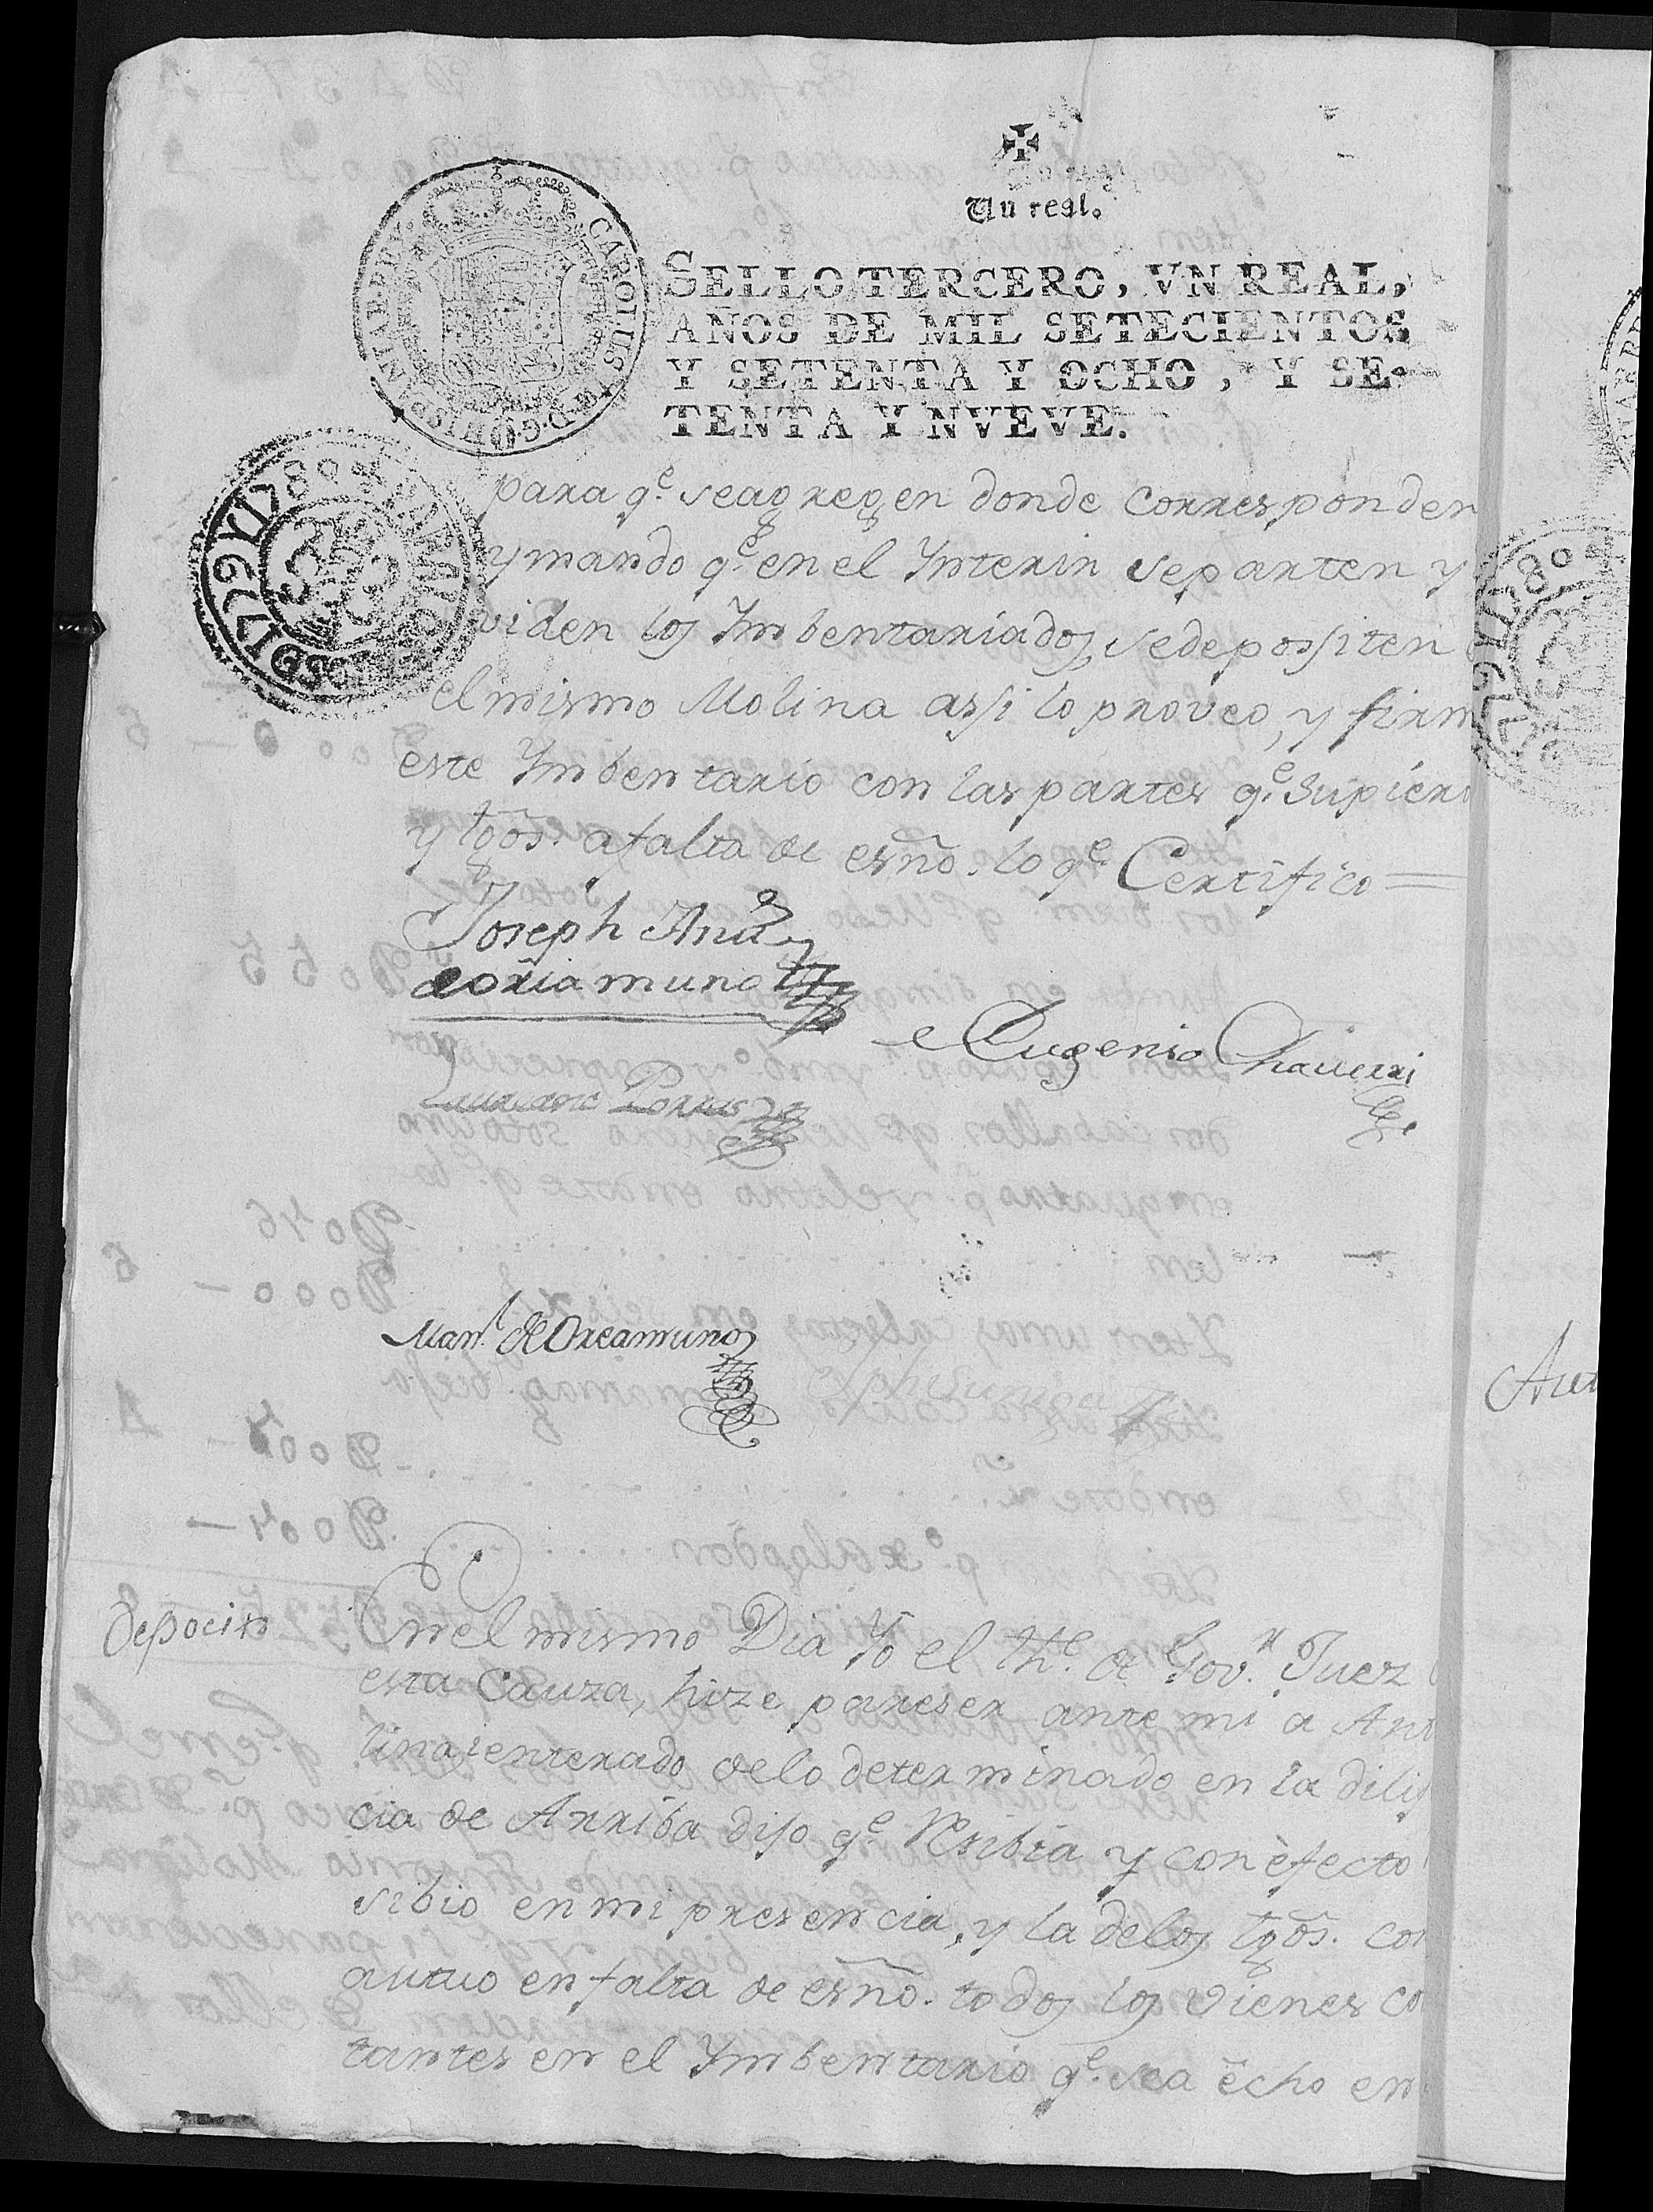 Un real.
SELLO TERCERO, VN REAL,
AÑOS DE MIL SETECIENTOS
Y SETENTA Y OCHO, Y SE-
TENTA Y NVEVE.
CAROLUS III D. G. HISPANIAR. REX
1779 Y 1780
para qe. seagregen donde corresponden
y mando qe. en el Ynterin separten y
viden los Ymbentariados, sedepossiten
el mismo Molina assi lo proveo, y firm
este Ymbentario con las partes qe. Supiero
y tgõs. afalta de esño. lo qe. Certifico =
Joseph Anto
de oriamuno
Eugenio Chaverri
Laureano Porras
Manl. de Oreamuno
Jph Suniga
Depocito
En el mismo Dia Yo el The. de Govr. Juez
esta Cauza, hize pareser ante mi a Ant
lina, enterado delo determinado en la dilig
cia de Arriba dijo qe. Resibia y con efecto
sibio en mi presencia, y la delos tgõs. con
autuo en falta de esño. todos los vienes co
tantes en el Ymbentario qe. sea echo en
Aut